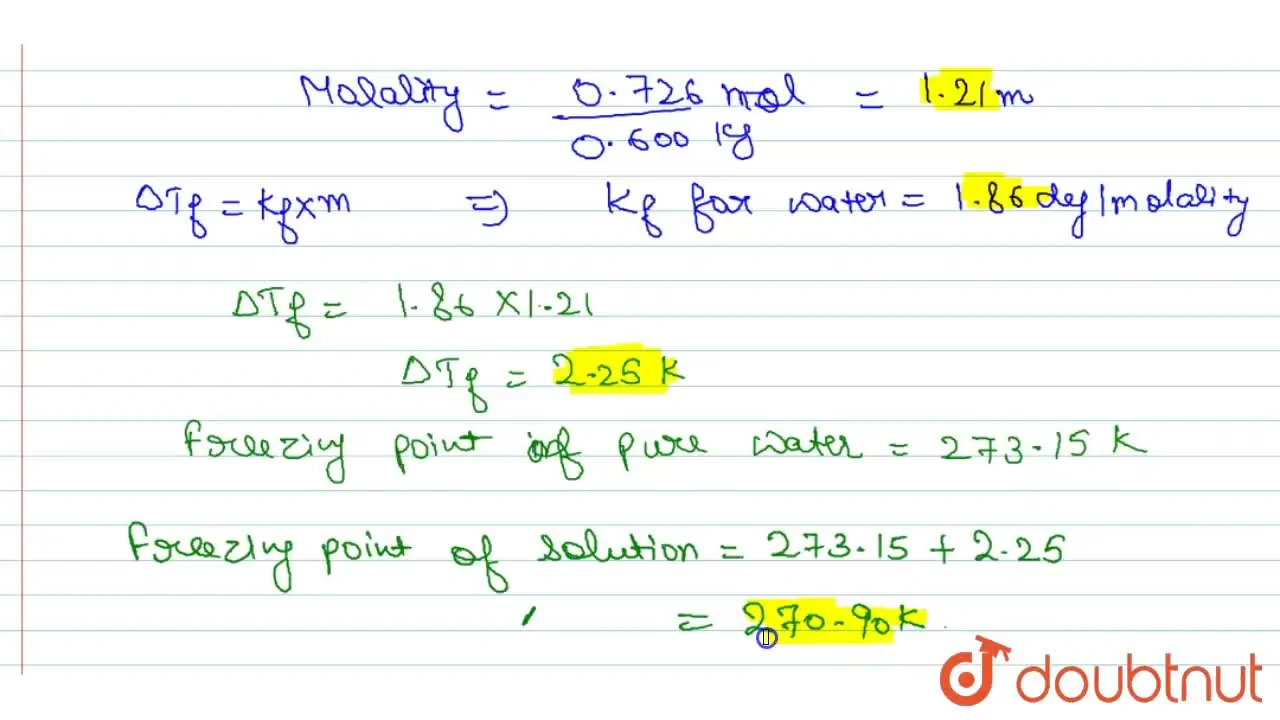 Molality = 0.726 mol / 0.600 kg = 1.21 m
ΔTf = Kf x m ⇒ Kf for water = 1.86 deg/molality
ΔTf = 1.86 X 1.21
ΔTf = 2.25 K
freezing point of pure water = 273.15 K
freezing point of solution = 273.15 + 2.25
= 270.90 K
doubtnut